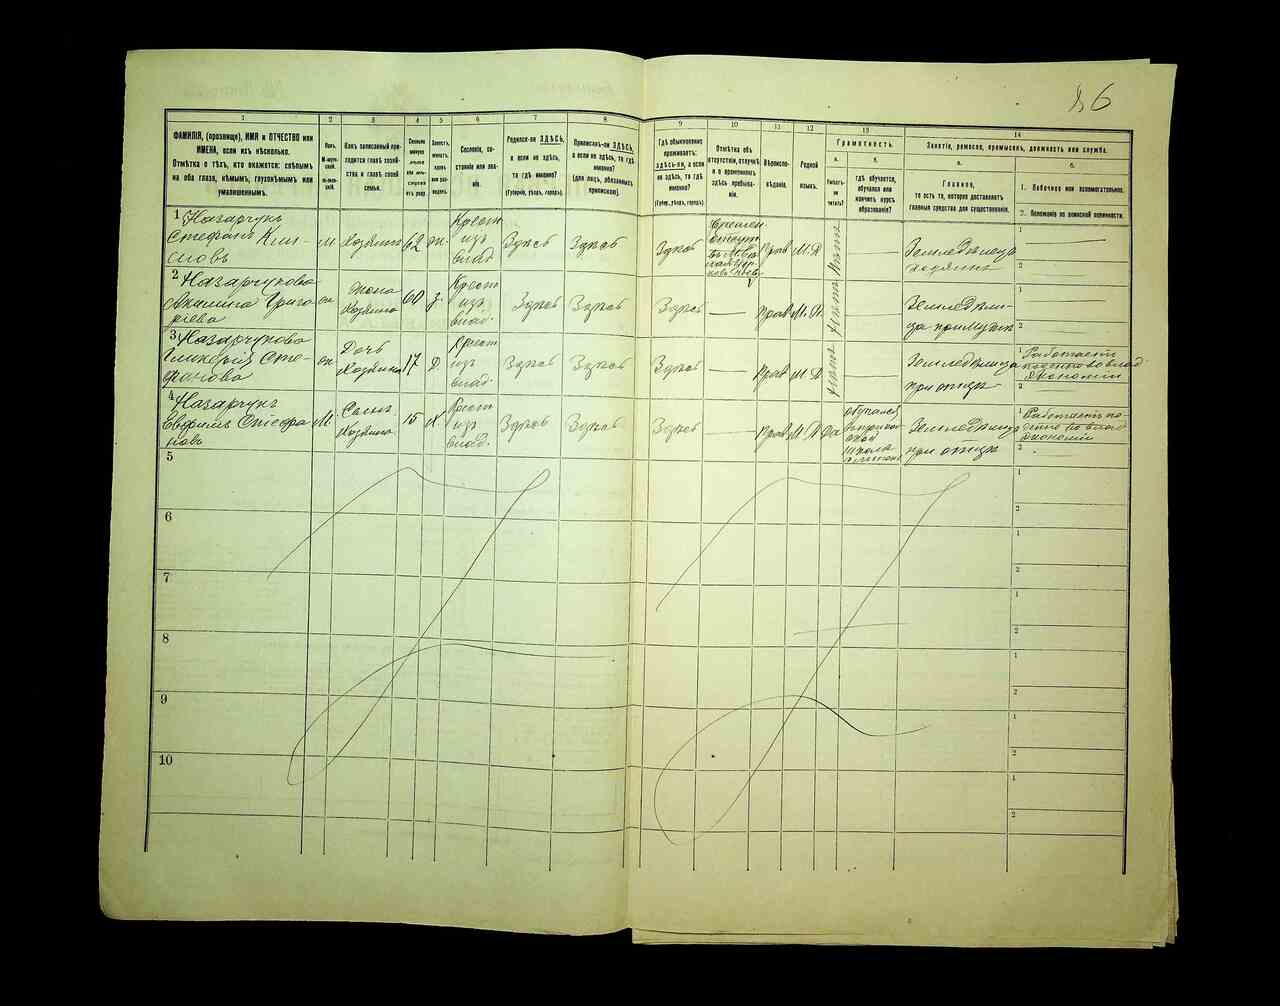 6
1
2
3
4
5
6
7
8
9
10
11
12
13
14
ФАМИЛІЯ, (прозвище), ИМЯ и ОТЧЕСТВО или
ИМЕНА, если ихъ нѣсколько.
Отмѣтка о тѣхъ, кто окажется: слѣпымъ
на оба глаза, нѣмымъ, глухонѣмымъ или
умалишеннымъ.
Полъ.
М-мужской.
Ж-женскій.
Какъ записанный приходится главѣ хозяйства и главѣ своей
семьи.
Сколько
минуло
лѣтъ
Холостъ,
женатъ,
вдовъ
или разведенъ.
Сословіе, состояніе или званіе.
Родился-ли ЗДѢСЬ,
а если не здѣсь,
то гдѣ именно?
(Губернія, уѣздъ, городъ).
Приписанъ-ли ЗДѢСЬ,
а если не здѣсь, то гдѣ
именно?
(для лицъ, обязанныхъ
припиской).
Гдѣ обыкновенно
проживаетъ:
здѣсь-ли, а если
не здѣсь, то гдѣ
именно?
(Губер., уѣздъ, городъ).
Отмѣтка объ
отсутствіи, отлучкѣ
и о временномъ
здѣсь пребываніи.
Вѣроисповѣданіе.
Родной
языкъ.
Грамотность.
а.
Умѣетъ-ли
читать?
б.
гдѣ обучается,
обучался или
кончилъ курсъ
образованія?
Занятіе, ремесло, промыселъ, должность или служба.
а.
Главное,
то есть то, которое доставляетъ
главныя средства для существованія.
б.
1. Побочное или вспомогательное.
2. Положеніе по воинской повинности.
1 Назарчукъ
Стефанъ Кли-
мовъ
м. Хозяинъ 62 ж. Крест. изъ влад. Здѣсь Здѣсь
Здѣсь Прав М. Р. нѣтъ — Земледѣлецъ хозяинъ
1 —
2 —
2 Назарчукова
Акилина Григо-
рьева
ж Жена Хозяина 60 з. Крест изъ влад. Здѣсь Здѣсь
Здѣсь — Прав М. Р. нѣтъ —
при мужѣ
1
2
3 Назарчукова
Гликерія Сте-
фанова
ж Дочь Хозяина 17 Д. Крест изъ влад. Здѣсь Здѣсь
Здѣсь — Прав М. Р. нѣтъ — Земледѣлица
при отцѣ
1 Работаетъ
экономіи
2
4 Назарчукъ
Евфимъ Стефа
новъ
М. Сынъ Хозяина 15 Х Крест изъ влад. Здѣсь Здѣсь
Здѣсь — Прав М. Р. да обучался
школа
Земледѣлецъ
при отцѣ
1 Работаетъ по-
денно во влад
экономіи
2
5
1
2
6
1
2
7
1
2
8
1
2
9
1
2
10
1
2